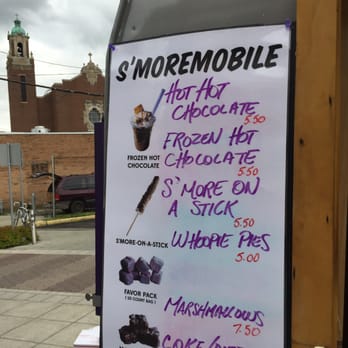 S'MOREMOBILE
HOT HOT
CHOCOLATE
5.50
FROZEN HOT
CHOCOLATE
5.50
FROZEN HOT
CHOCOLATE
S'MORE ON
A STICK
5.50
S'MORE-ON-A-STICK
WHOOPIE PIES
5.00
FAVOR PACK
( 25 COUNT BAG )
MARSHMALLOWS
7.50
COKE/DIET